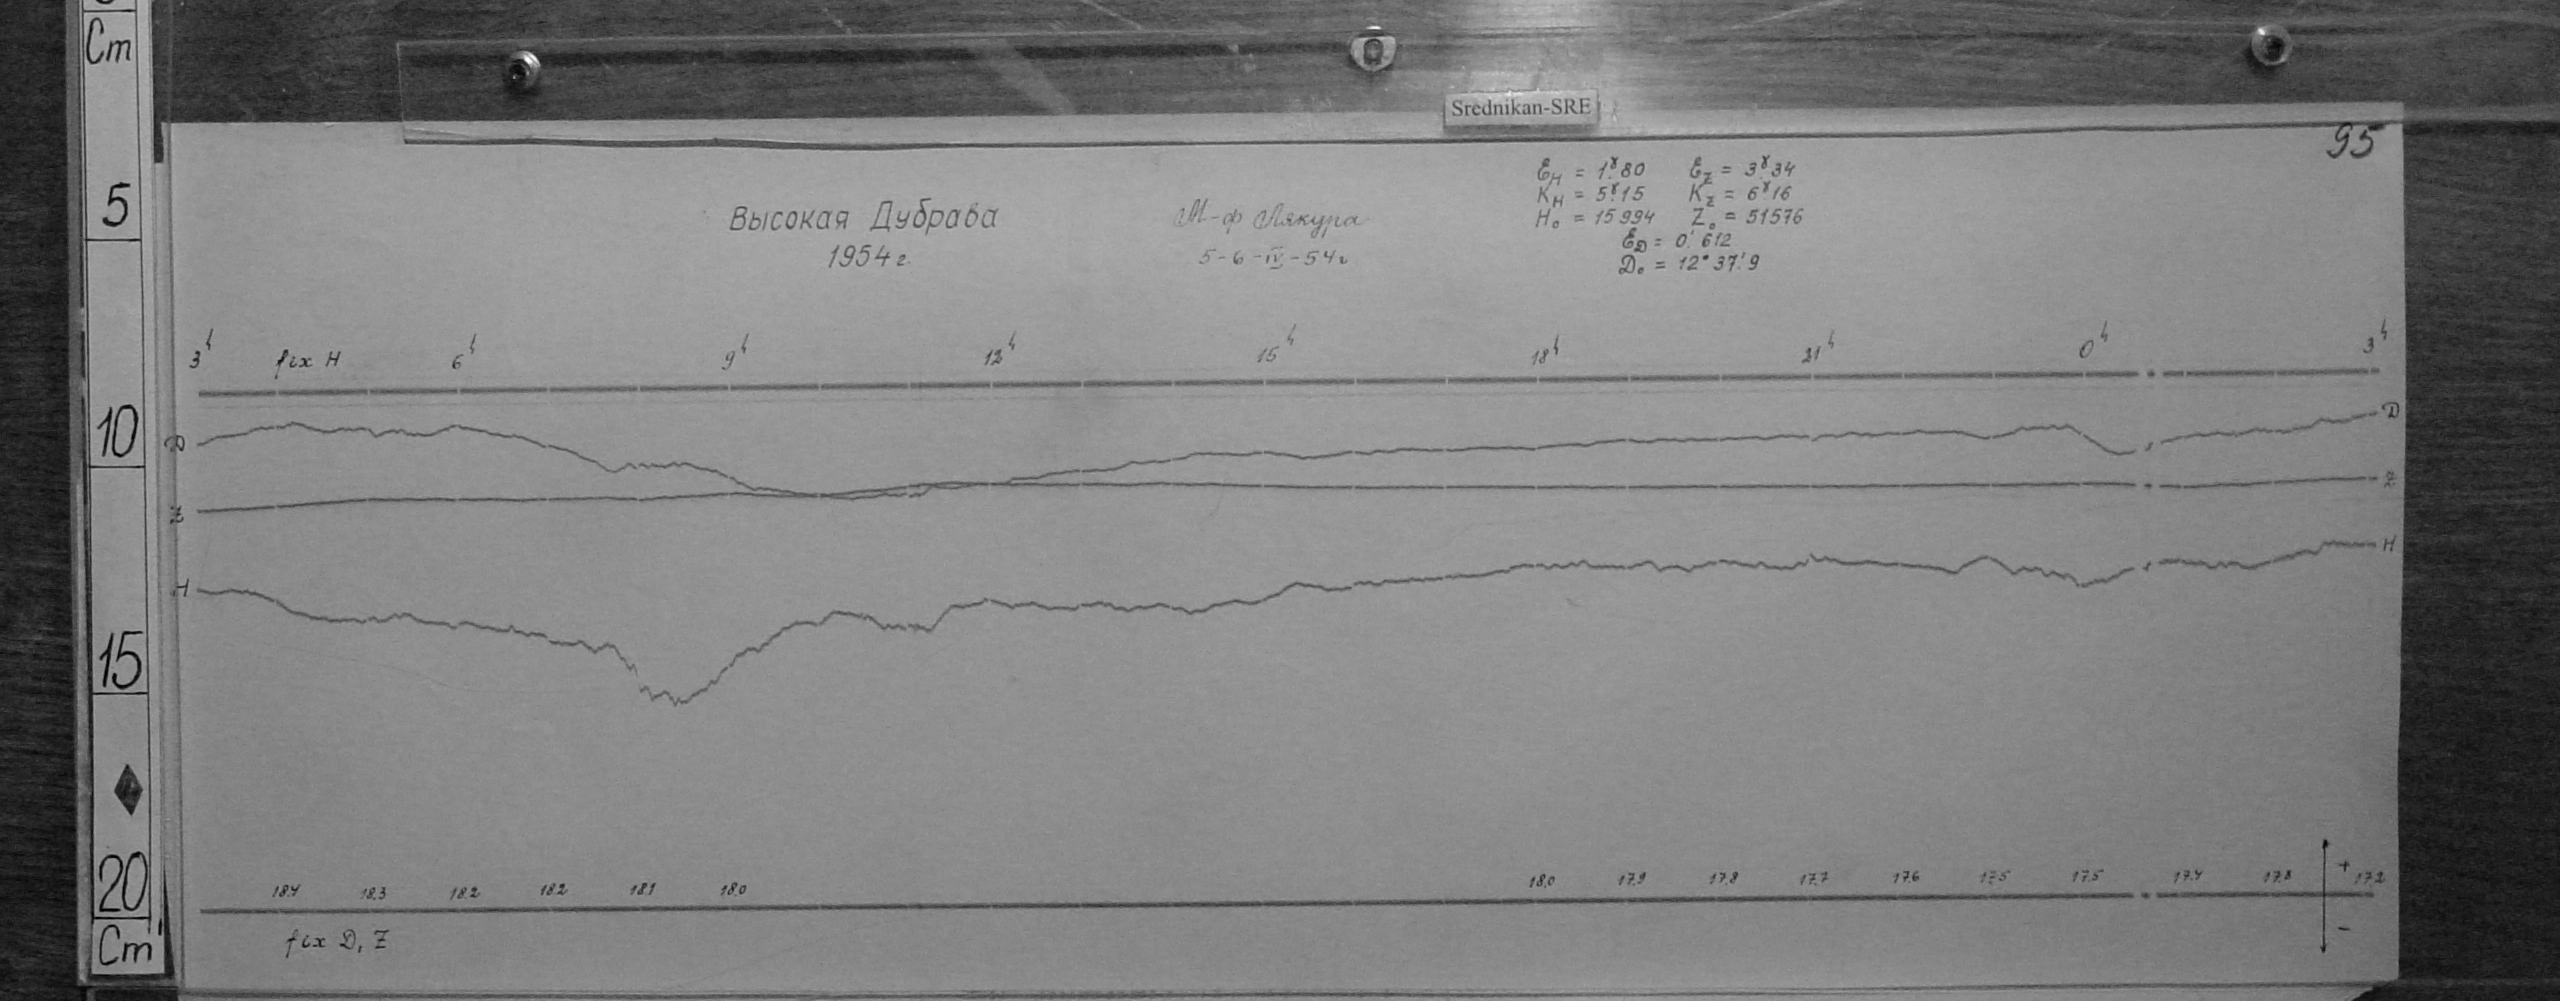 Cm
5
10
15
20
Cm
Srednikan-SRE
95
Высокая Дубрава
1954 г.
М-ф Лякура
5-6-IV-54г
Ɛн = 1ˠ.80 Ɛz = 3ˠ34
Kн = 5ˠ.15 Kz = 6ˠ16
H₀ = 15994 Z₀ = 51576
ƐD = 0'.612
D₀ = 12°37'.9
3ʰ fix H 6ʰ 9ʰ 12ʰ 15ʰ 18ʰ 21ʰ 0ʰ 3ʰ
D D
Z Z
H H
18.4 18.3 18.2 18.2 18.1 18.0 18.0 17.9 17.8 17.7 17.6 17.5 17.5 17.4 17.3 17.2
+
-
fix D, Z